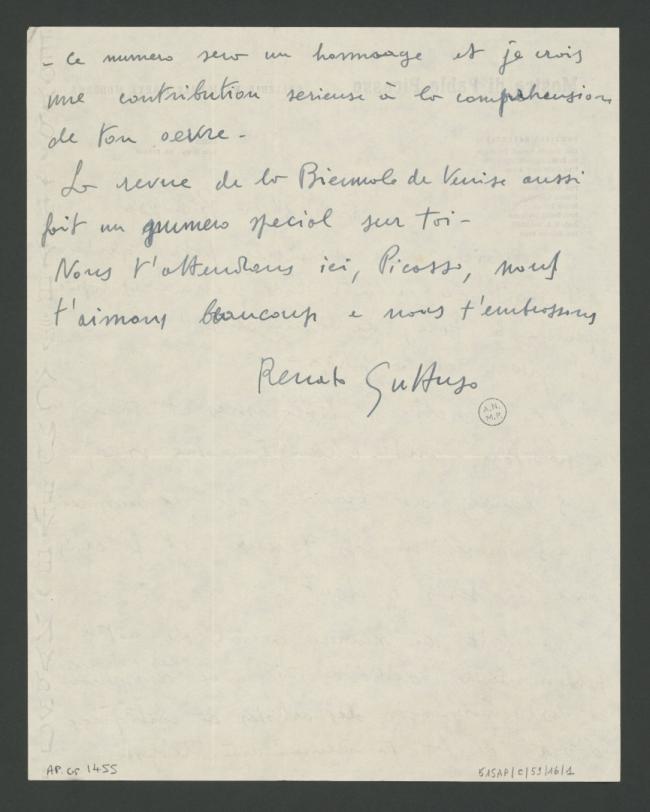 - Ce numero sera un hommage et je crois
une contribution serieuse à la comprehension
de ton oevre -
La revue de la Biennale de Venise aussi
fait un numero special sur toi -
Nous t'attendons ici, Picasso, nous
t'aimons beaucoup e nous t'embrassons
Renato Guttuso
A.N.
M.P.
AP. Cr 1455
515AP/C/59/16/1